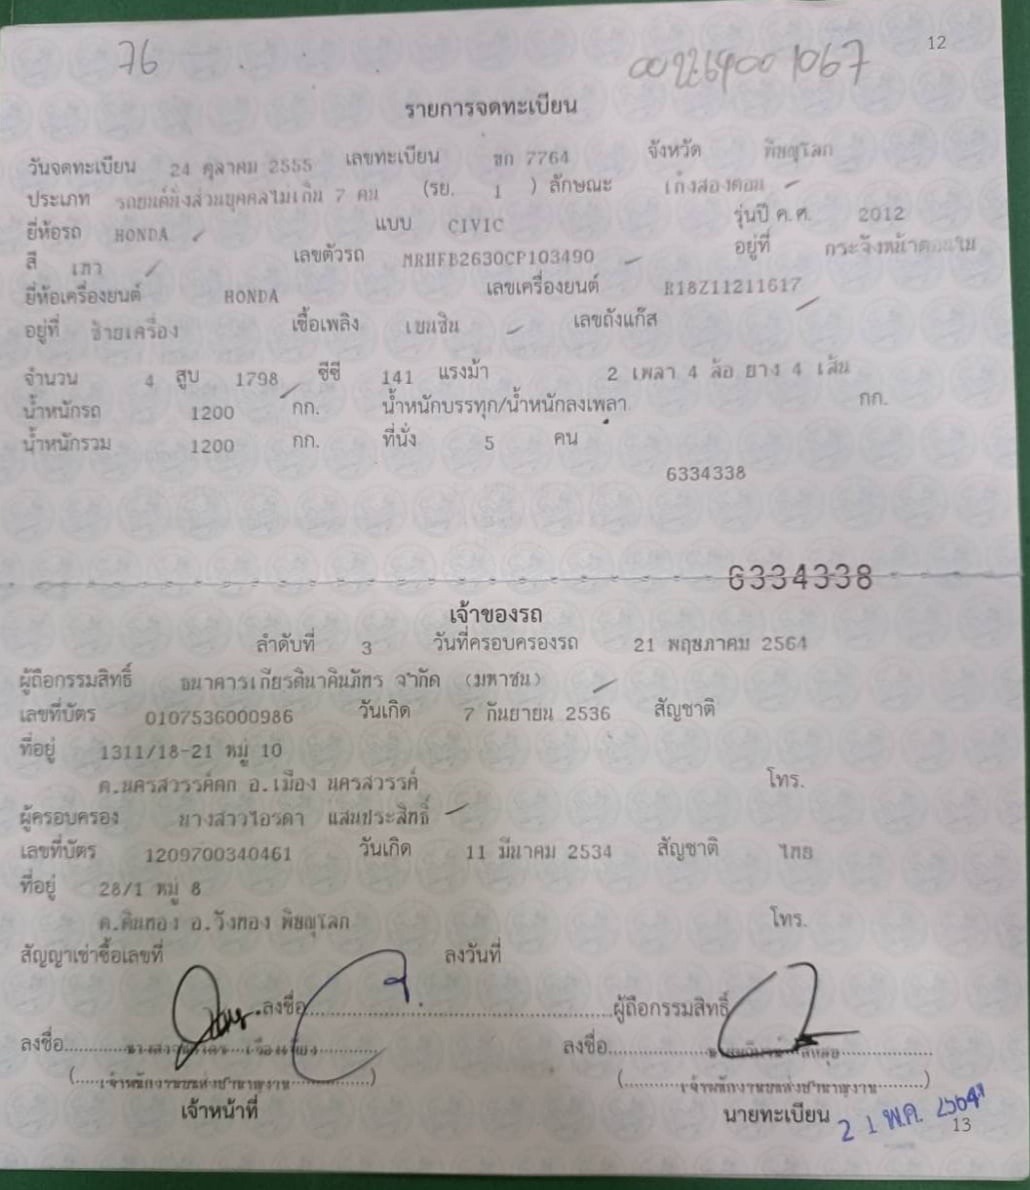 76
002264001067
12
รายการจดทะเบียน
วันจดทะเบียน 24 ตุลาคม 2555 เลขทะเบียน ขก 7764 จังหวัด พิษณุโลก
ประเภท รถยนต์นั่งส่วนบุคคลไม่เกิน 7 คน (รย. 1 ) ลักษณะ เก๋งสองตอน
ยี่ห้อรถ HONDA แบบ CIVIC รุ่นปี ค.ศ. 2012
สี เทา เลขตัวรถ MRHFB2630CP103490 อยู่ที่ กระจังหน้าตอนใน
ยี่ห้อเครื่องยนต์ HONDA เลขเครื่องยนต์ R18Z11211617
อยู่ที่ ซ้ายเครื่อง เชื้อเพลิง เบนซิน เลขถังแก๊ส
จำนวน 4 สูบ 1798 ซีซี 141 แรงม้า 2 เพลา 4 ล้อ ยาง 4 เส้น
น้ำหนักรถ 1200 กก. น้ำหนักบรรทุก/น้ำหนักลงเพลา กก.
น้ำหนักรวม 1200 กก. ที่นั่ง 5 คน
6334338
6334338
เจ้าของรถ
ลำดับที่ 3 วันที่ครอบครองรถ 21 พฤษภาคม 2564
ผู้ถือกรรมสิทธิ์ ธนาคารเกียรตินาคินภัทร จำกัด (มหาชน)
เลขที่บัตร 0107536000986 วันเกิด 7 กันยายน 2536 สัญชาติ
ที่อยู่ 1311/18-21 หมู่ 10
ต.นครสวรรค์ตก อ.เมือง นครสวรรค์ โทร.
ผู้ครอบครอง นางสาวไอรดา แสนประสิทธิ์
เลขที่บัตร 1209700340461 วันเกิด 11 มีนาคม 2534 สัญชาติ ไทย
ที่อยู่ 28/1 หมู่ 8
ต.ดินทอง อ.วังทอง พิษณุโลก โทร.
สัญญาเช่าซื้อเลขที่ ลงวันที่
ลงชื่อ ผู้ถือกรรมสิทธิ์
ลงชื่อ ลงชื่อ
(เจ้าพนักงานขนส่งชำนาญงาน) (เจ้าพนักงานขนส่งชำนาญงาน)
เจ้าหน้าที่ นายทะเบียน 21 พ.ค. 2564
13